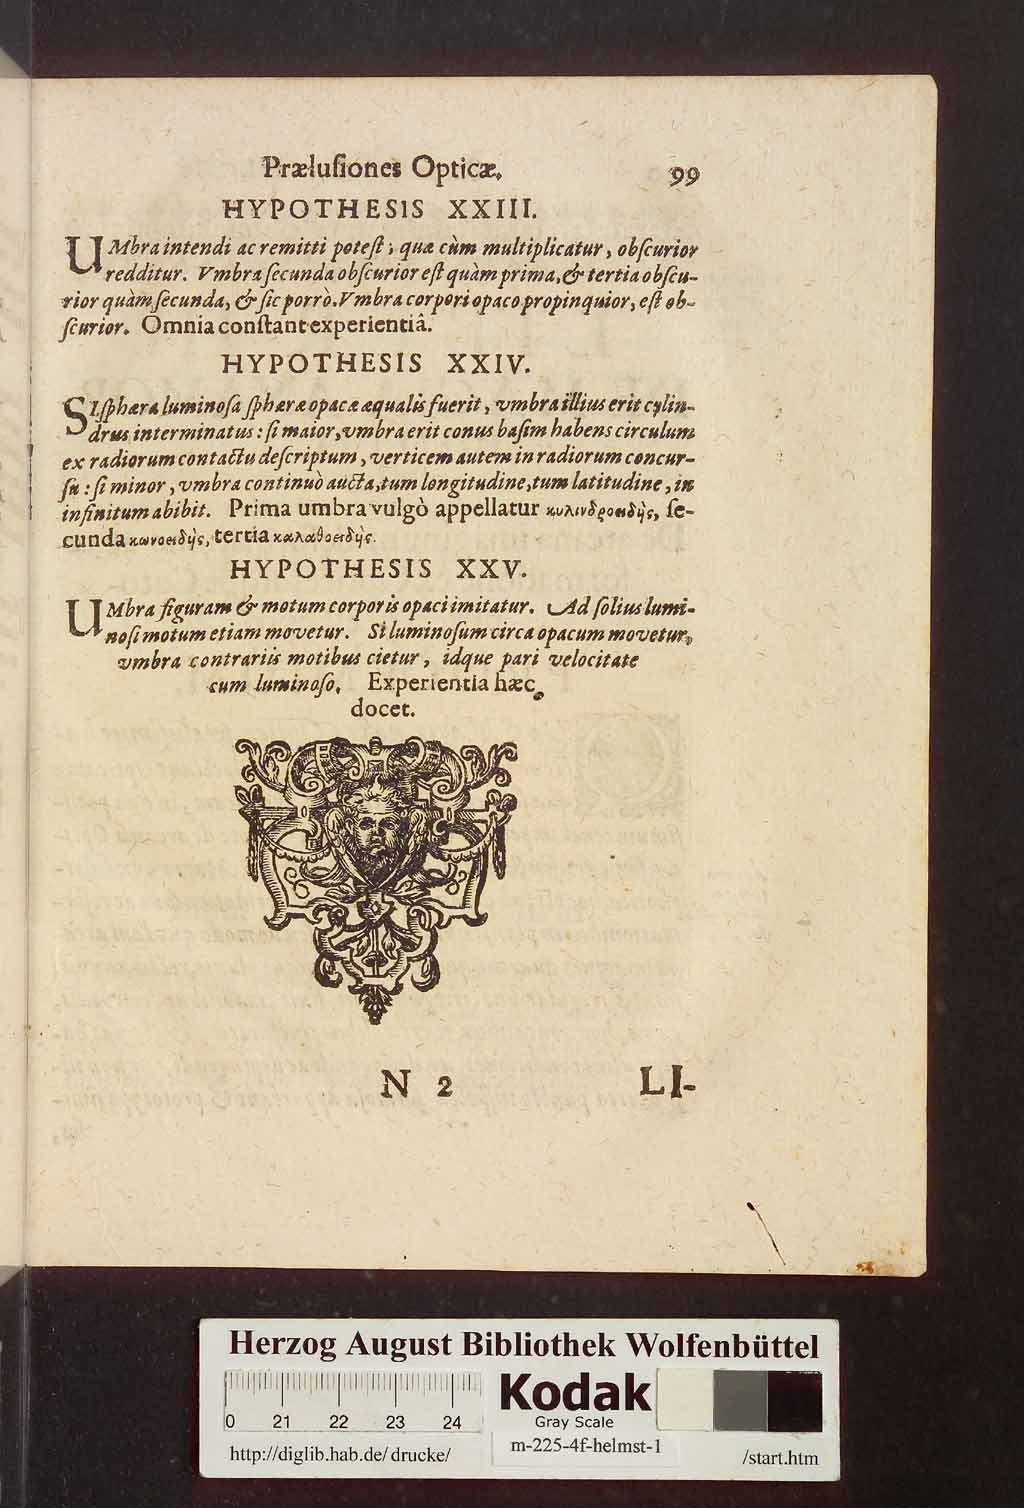 Præluſiones Opticæ. 99
HYPOTHESIS XXIII.
UMbra intendi ac remitti poteſt; quæ cùm multiplicatur, obſcurior
redditur. Vmbra ſecunda obſcurior eſt quàm prima, & tertia obſcu-
rior quàm ſecunda, & ſic porrò. Vmbra corpori opaco propinquior, eſt ob-
ſcurior. Omnia conſtant experientiâ.
HYPOTHESIS XXIV.
SI ſphæra luminoſa ſphæræ opacæ æqualis fuerit, vmbra illius erit cylin-
drus interminatus: ſi maior, vmbra erit conus baſim habens circulum
ex radiorum contactu deſcriptum, verticem autem in radiorum concur-
ſu: ſi minor, vmbra continuò aucta, tum longitudine, tum latitudine, in
infinitum abibit. Prima umbra vulgò appellatur κυλινδροειδὴς, ſe-
cunda κωνοειδὴς, tertia καλαθοειδὴς.
HYPOTHESIS XXV.
UMbra figuram & motum corporis opaci imitatur. Ad ſolius lumi-
noſi motum etiam movetur. Si luminoſum circa opacum movetur,
vmbra contrariis motibus cietur, idque pari velocitate
cum luminoſo. Experientia hæc
docet.
N 2 LI-
Herzog August Bibliothek Wolfenbüttel
0 21 22 23 24
Kodak
Gray Scale
http://diglib.hab.de/drucke/ m-225-4f-helmst-1 /start.htm